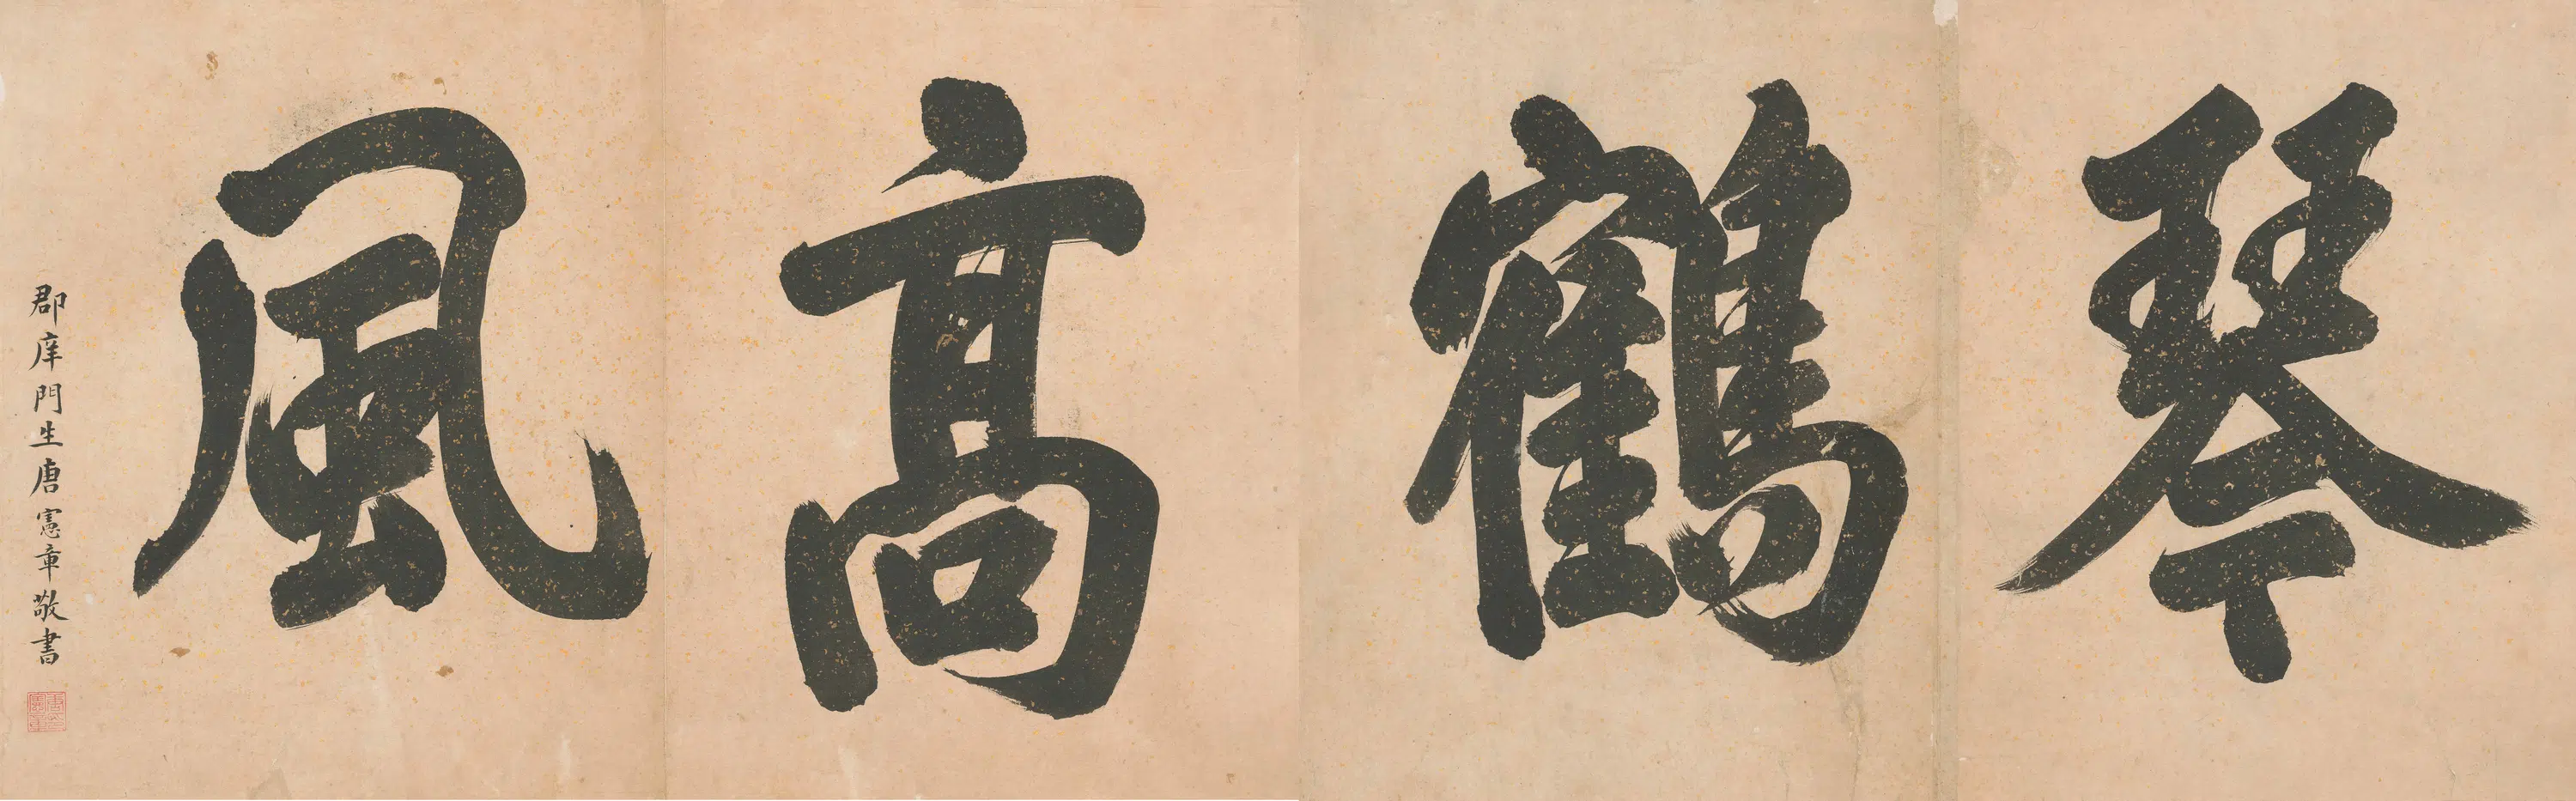 琴鶴高風
郡庠門生唐憲章敬書